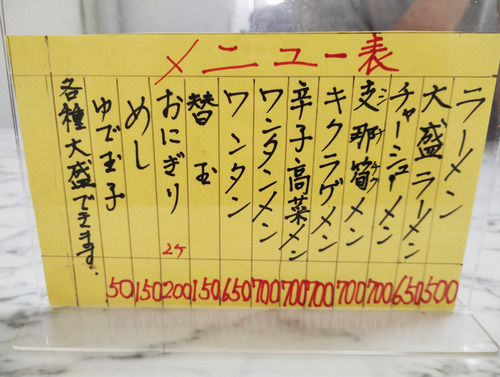 メニュー表
ラーメン 500
大盛ラーメン 650
チャーシューメン 700
支那筍メン シナチク 700
キクラゲメン 700
辛子高菜メン 700
ワンタンメン 700
ワンタン 650
替玉 150
おにぎり 2ケ 200
めし 150
ゆで玉子 50
各種大盛できます.